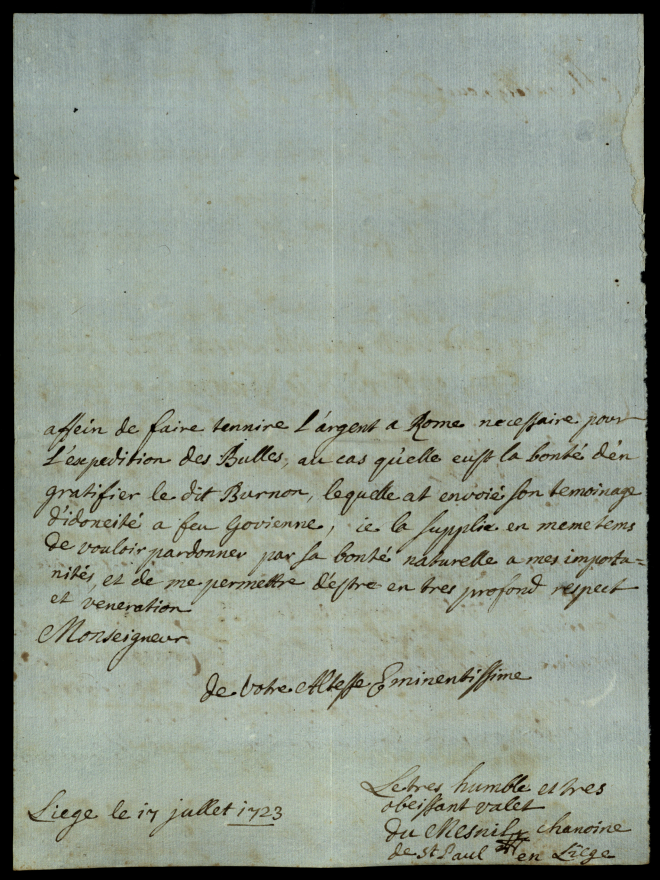 affein de faire tennire L'argent a Rome necessaire pour
L'expedition des Bulles, au cas qu'elle eust la bonté d'en
gratifier le dit Burnon, lequelle at envoié son temoinage
d'idoneité a feu Govienne, ie la supplie en meme tems
de vouloir pardonner par sa bonté naturelle a mes importu=
nités, et de me permettre d'estre en tres profond respect
et veneration
Monseigneur
de Votre Altesse Eminentissime
Liege le 17 jullet 1723
Le tres humble et tres
obeissant valet
du Mesnil chanoine
de St Paul en Liege